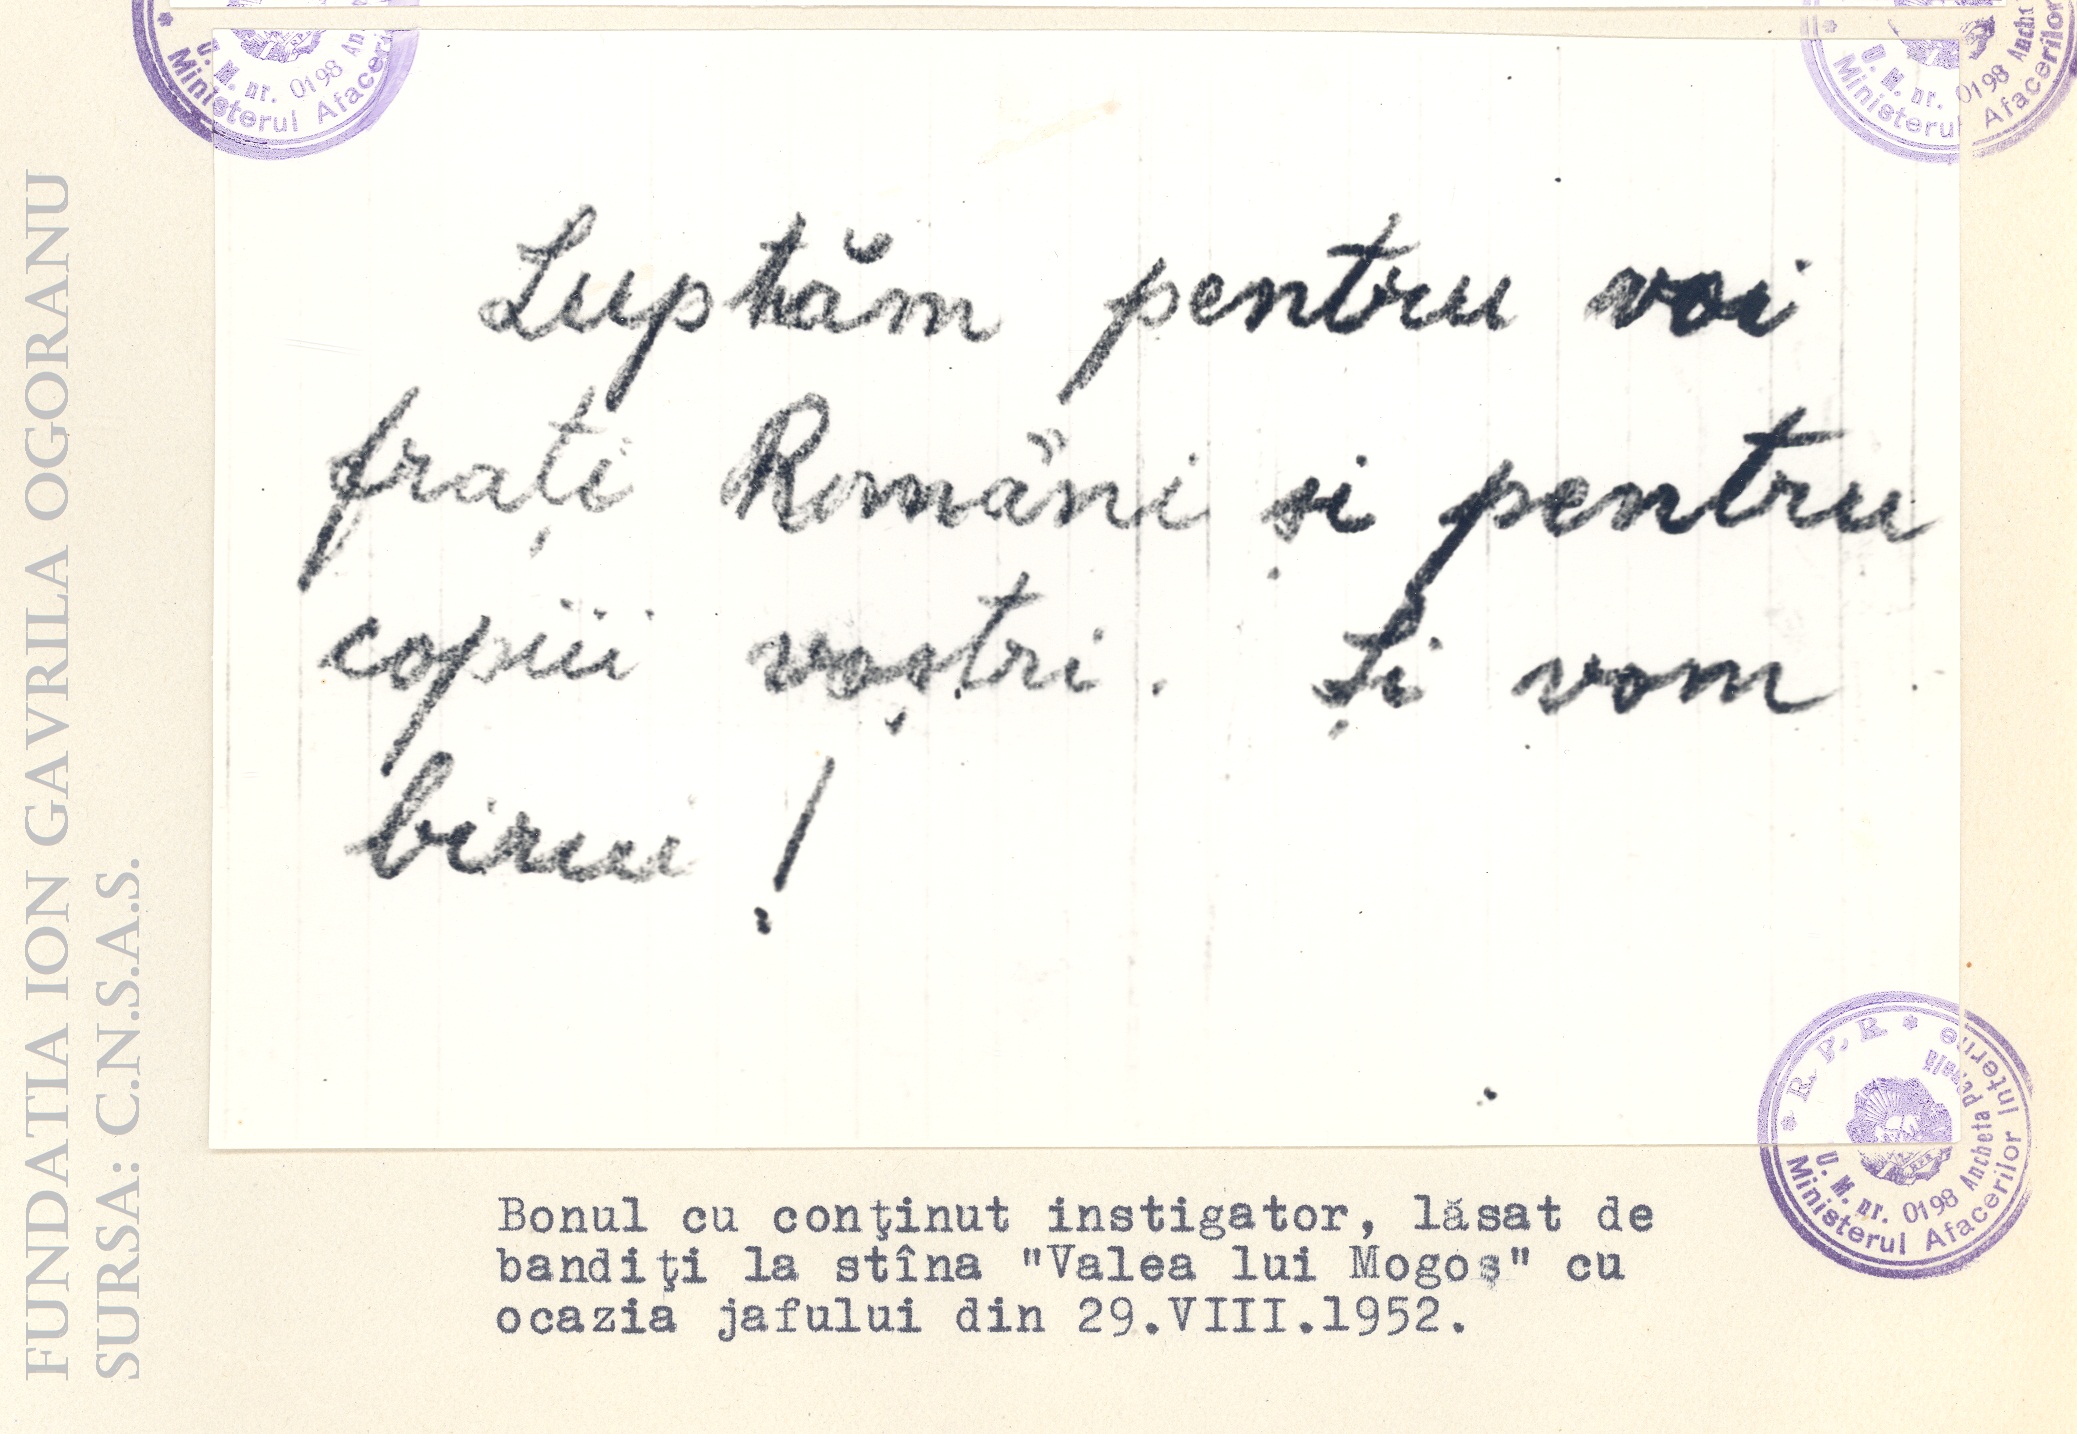 U. M. nr. 0198
Ministerul Afacerilor
U. M. nr. 0198
Ministerul Afacerilor
Luptăm pentru voi
frați Români și pentru
copiii voștri. Și vom
birui!
R.P.R
U. M. nr. 0198 Ancheta Penală
Ministerul Afacerilor Interne
Bonul cu conţinut instigator, lăsat de
bandiţi la stîna "Valea lui Mogoş" cu
ocazia jafului din 29.VIII.1952.
FUNDATIA ION GAVRILA OGORANU
SURSA: C.N.S.A.S.